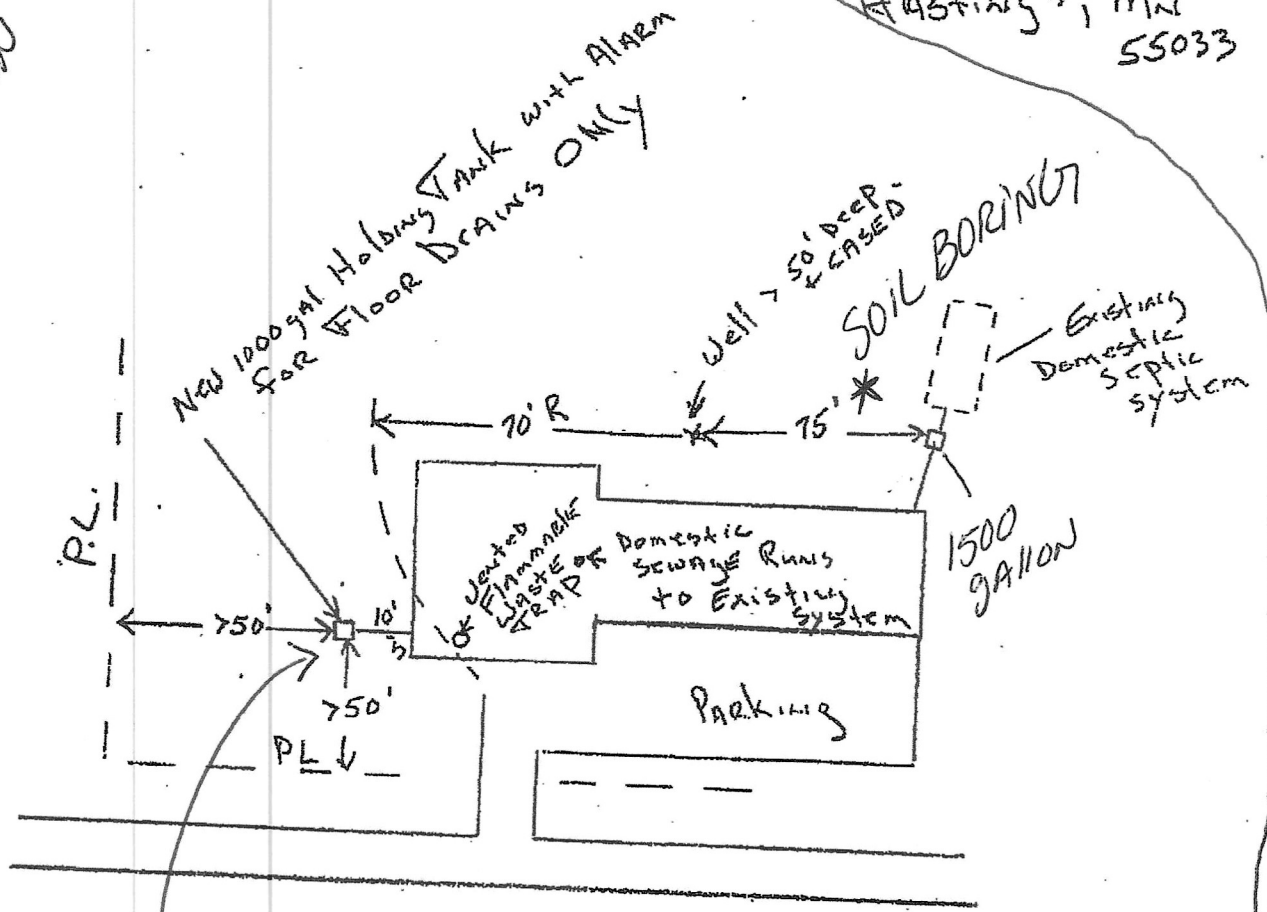 Hastings, MN
55033
New 1000 gal Holding Tank with Alarm
for Floor Drains ONly
Well > 50' Deep
+ CASED
SOIL BORING
Existing
Domestic
Septic
System
70' R
75'
P.L.
Vented
Flammable
Waste
TRAP
Domestic
Sewage Runs
to Existing
System
1500
gallon
>50'
10'
>50'
Parking
PL